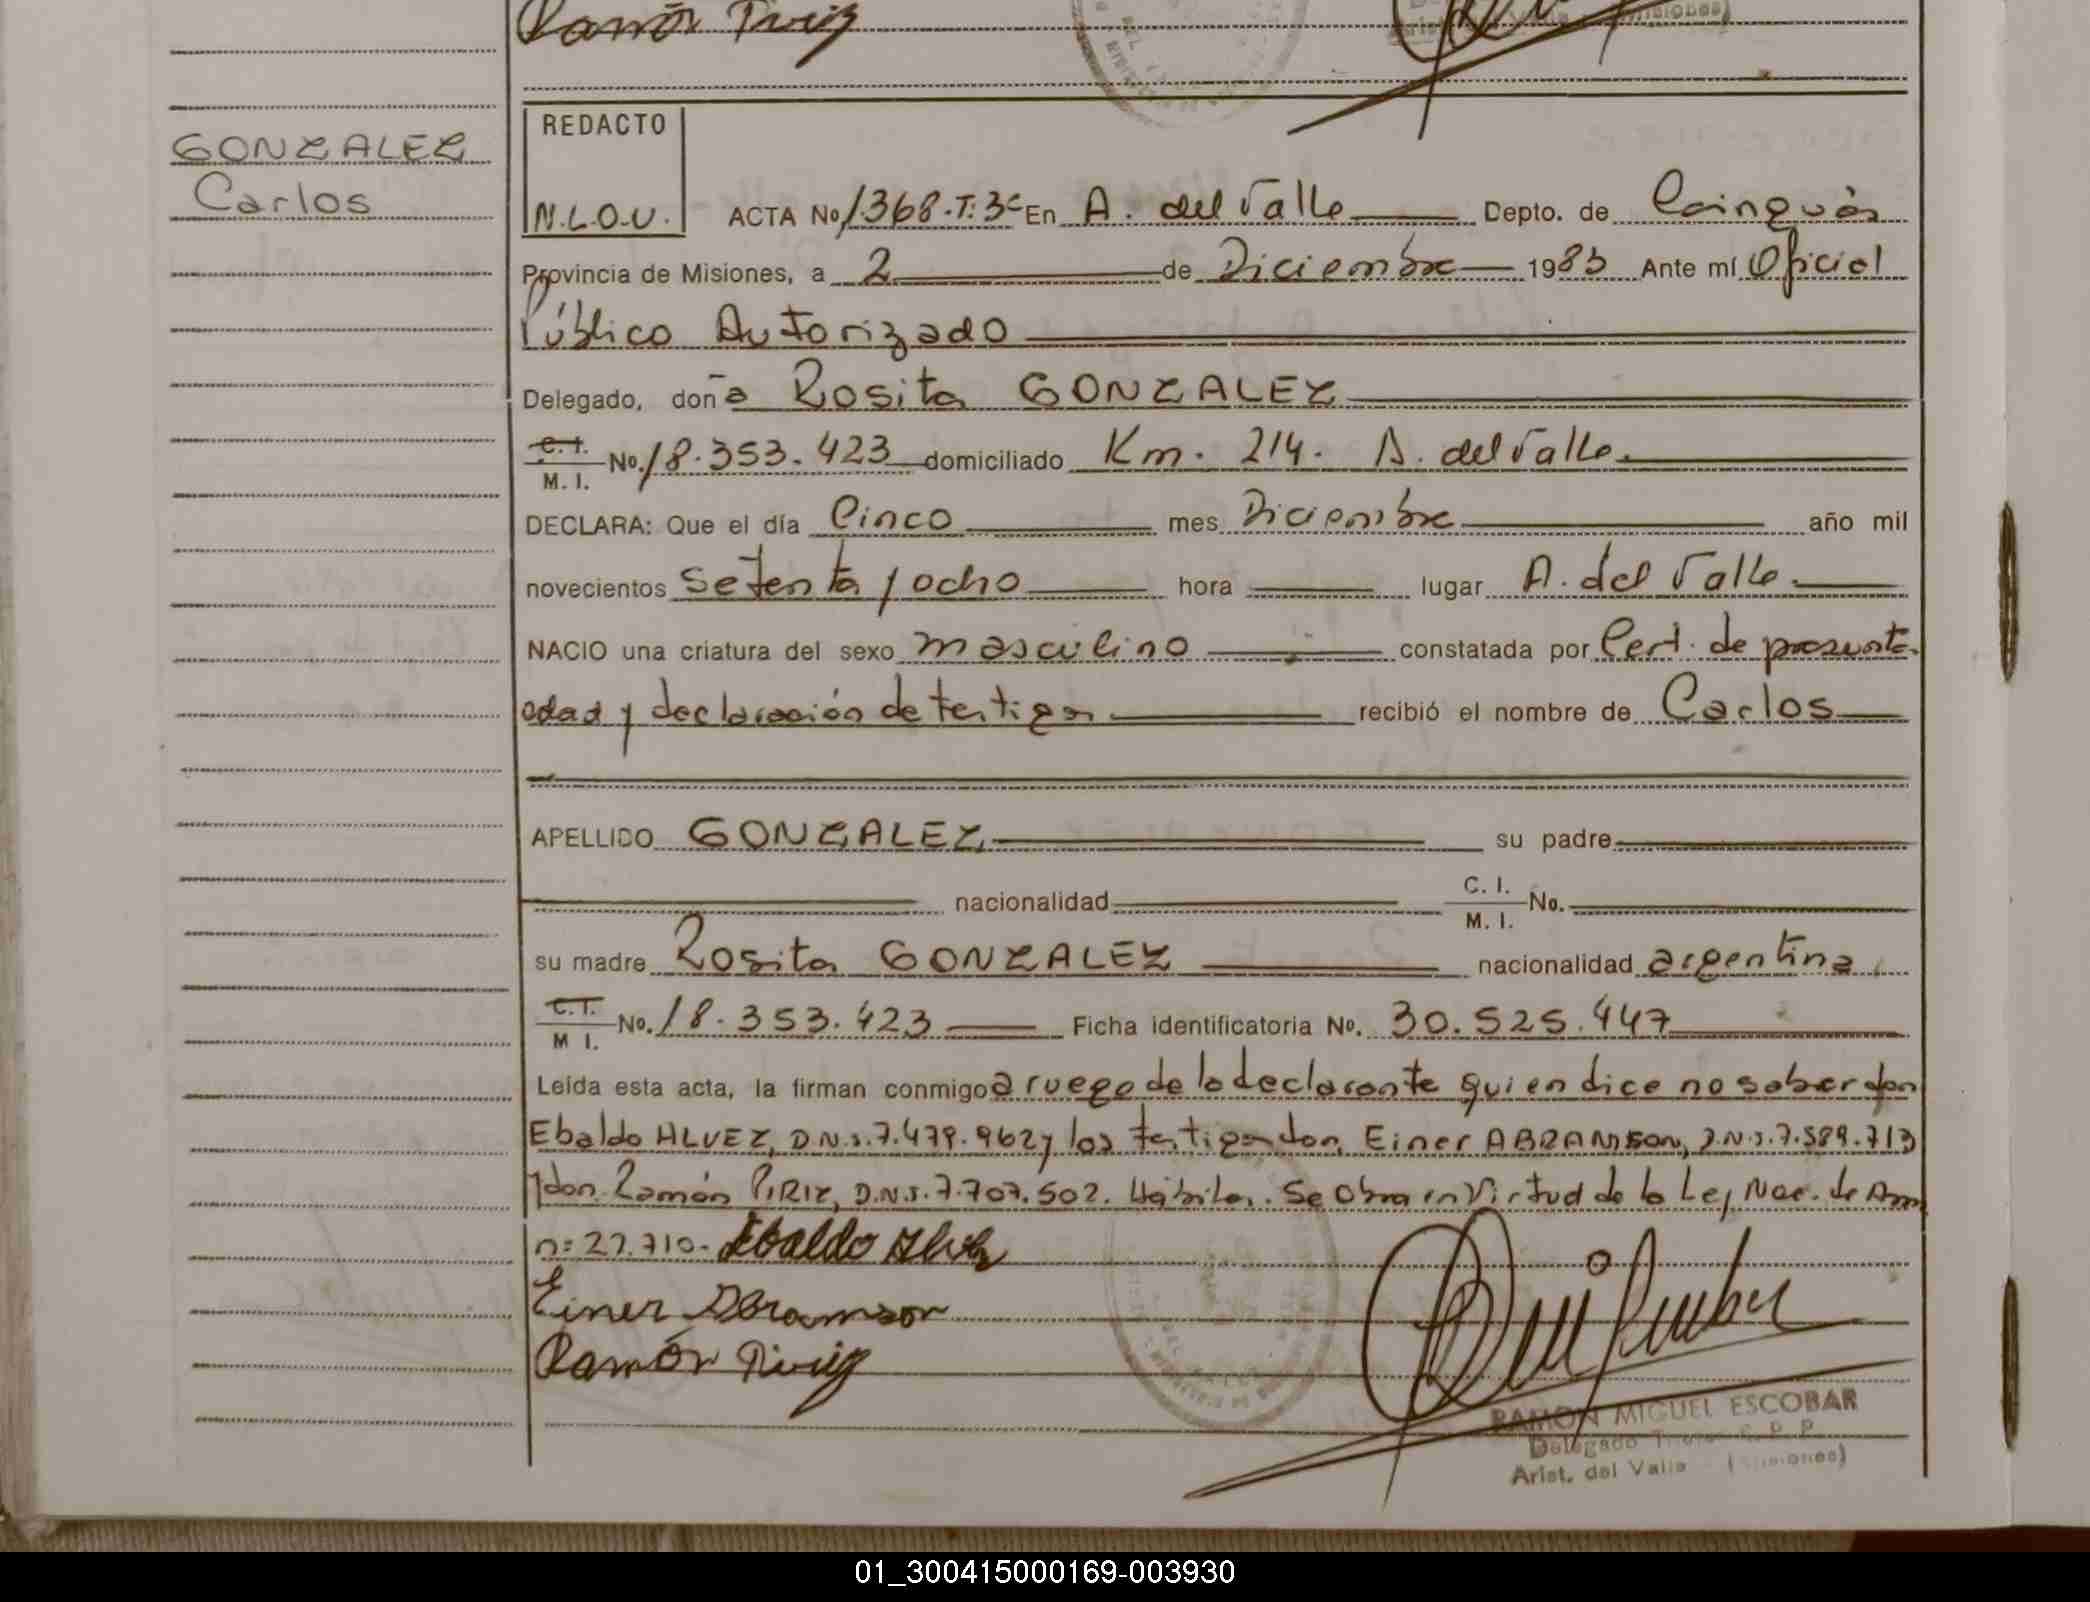 Ramón Piriz
GONZALEZ
Carlos
REDACTO
N.L.O.U.
ACTA No 1368.T:3º En A. del Valle Depto. de Cainguás
Provincia de Misiones, a 2 de Diciembre 1983 Ante mí Oficial
Público Autorizado
Delegado, don a Rosita GONZALEZ
C.I. M.I. No. 18.353.423 domiciliado Km. 214. A. del Valle.
DECLARA: Que el día Cinco mes Diciembre año mil
novecientos setenta y ocho hora lugar A. del Valle.
NACIO una criatura del sexo masculino constatada por Cert. de presunta
edad y declaración de testigos recibió el nombre de Carlos
APELLIDO GONZALEZ su padre
nacionalidad C. I. M. I. No.
su madre Rosita GONZALEZ nacionalidad argentina
C.I. M I. No. 18.353.423 Ficha identificatoria No. 30.525.447
Leída esta acta, la firman conmigo a ruego de la declarante quien dice no saber don
Ebaldo ALVEZ, D.N.I. 7.479.962 y los testigos don Einer ABRAMSON, D.N.I. 7.589.713
y don Ramón PIRIZ, D.N.I. 7.707.502. Hábiles. Se obra en Virtud de la Ley Nac. de Am
n: 22.710- Ebaldo Alvez
Einer Abramson
Ramón Piriz
RAMON MIGUEL ESCOBAR
Delegado
Arist. del Valle (Misiones)
01_300415000169-003930